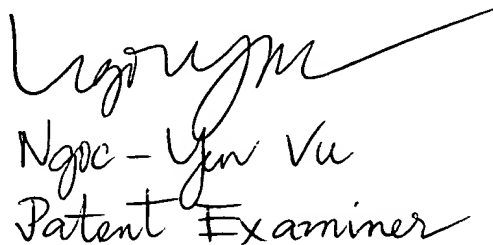 Ngoc-Yen Vu
Patent Examiner